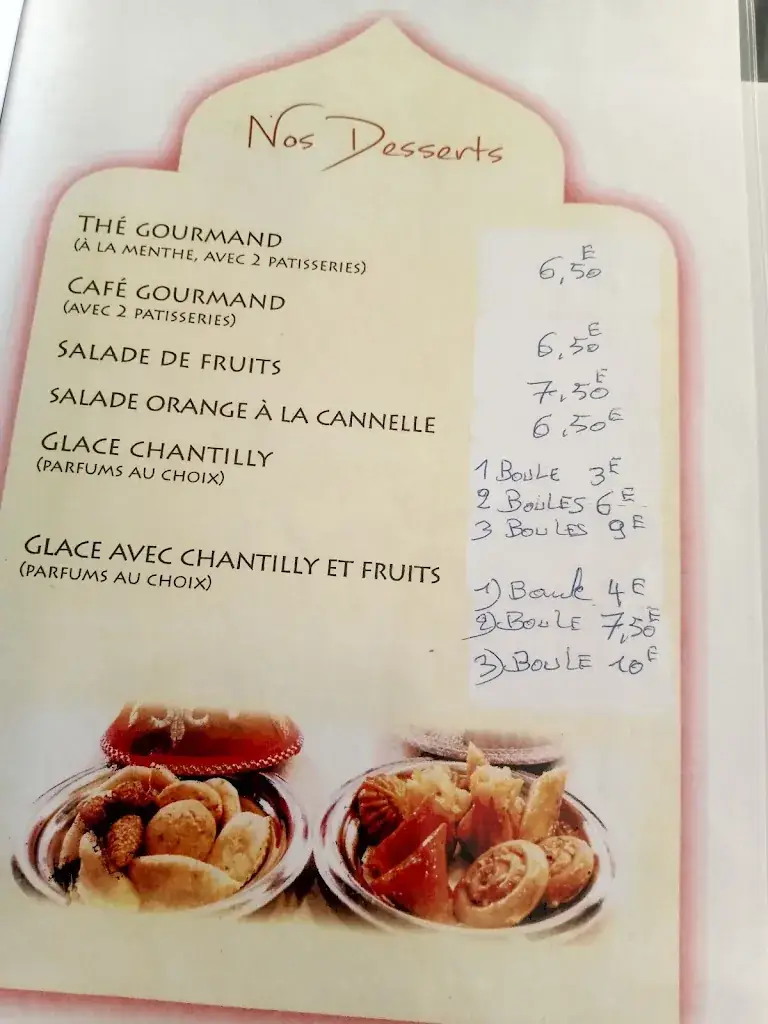 Nos Desserts
THÉ GOURMAND
(À LA MENTHE, AVEC 2 PATISSERIES)
6,50 E
CAFÉ GOURMAND
(AVEC 2 PATISSERIES)
6,50 E
SALADE DE FRUITS
7,50 E
SALADE ORANGE À LA CANNELLE
6,50 E
GLACE CHANTILLY
(PARFUMS AU CHOIX)
1 BOULE 3 E
2 BOULES 6 E
3 BOULES 9 E
GLACE AVEC CHANTILLY ET FRUITS
(PARFUMS AU CHOIX)
1) Boule 4 E
2) BOULE 7,50 E
3) BOULE 10 E